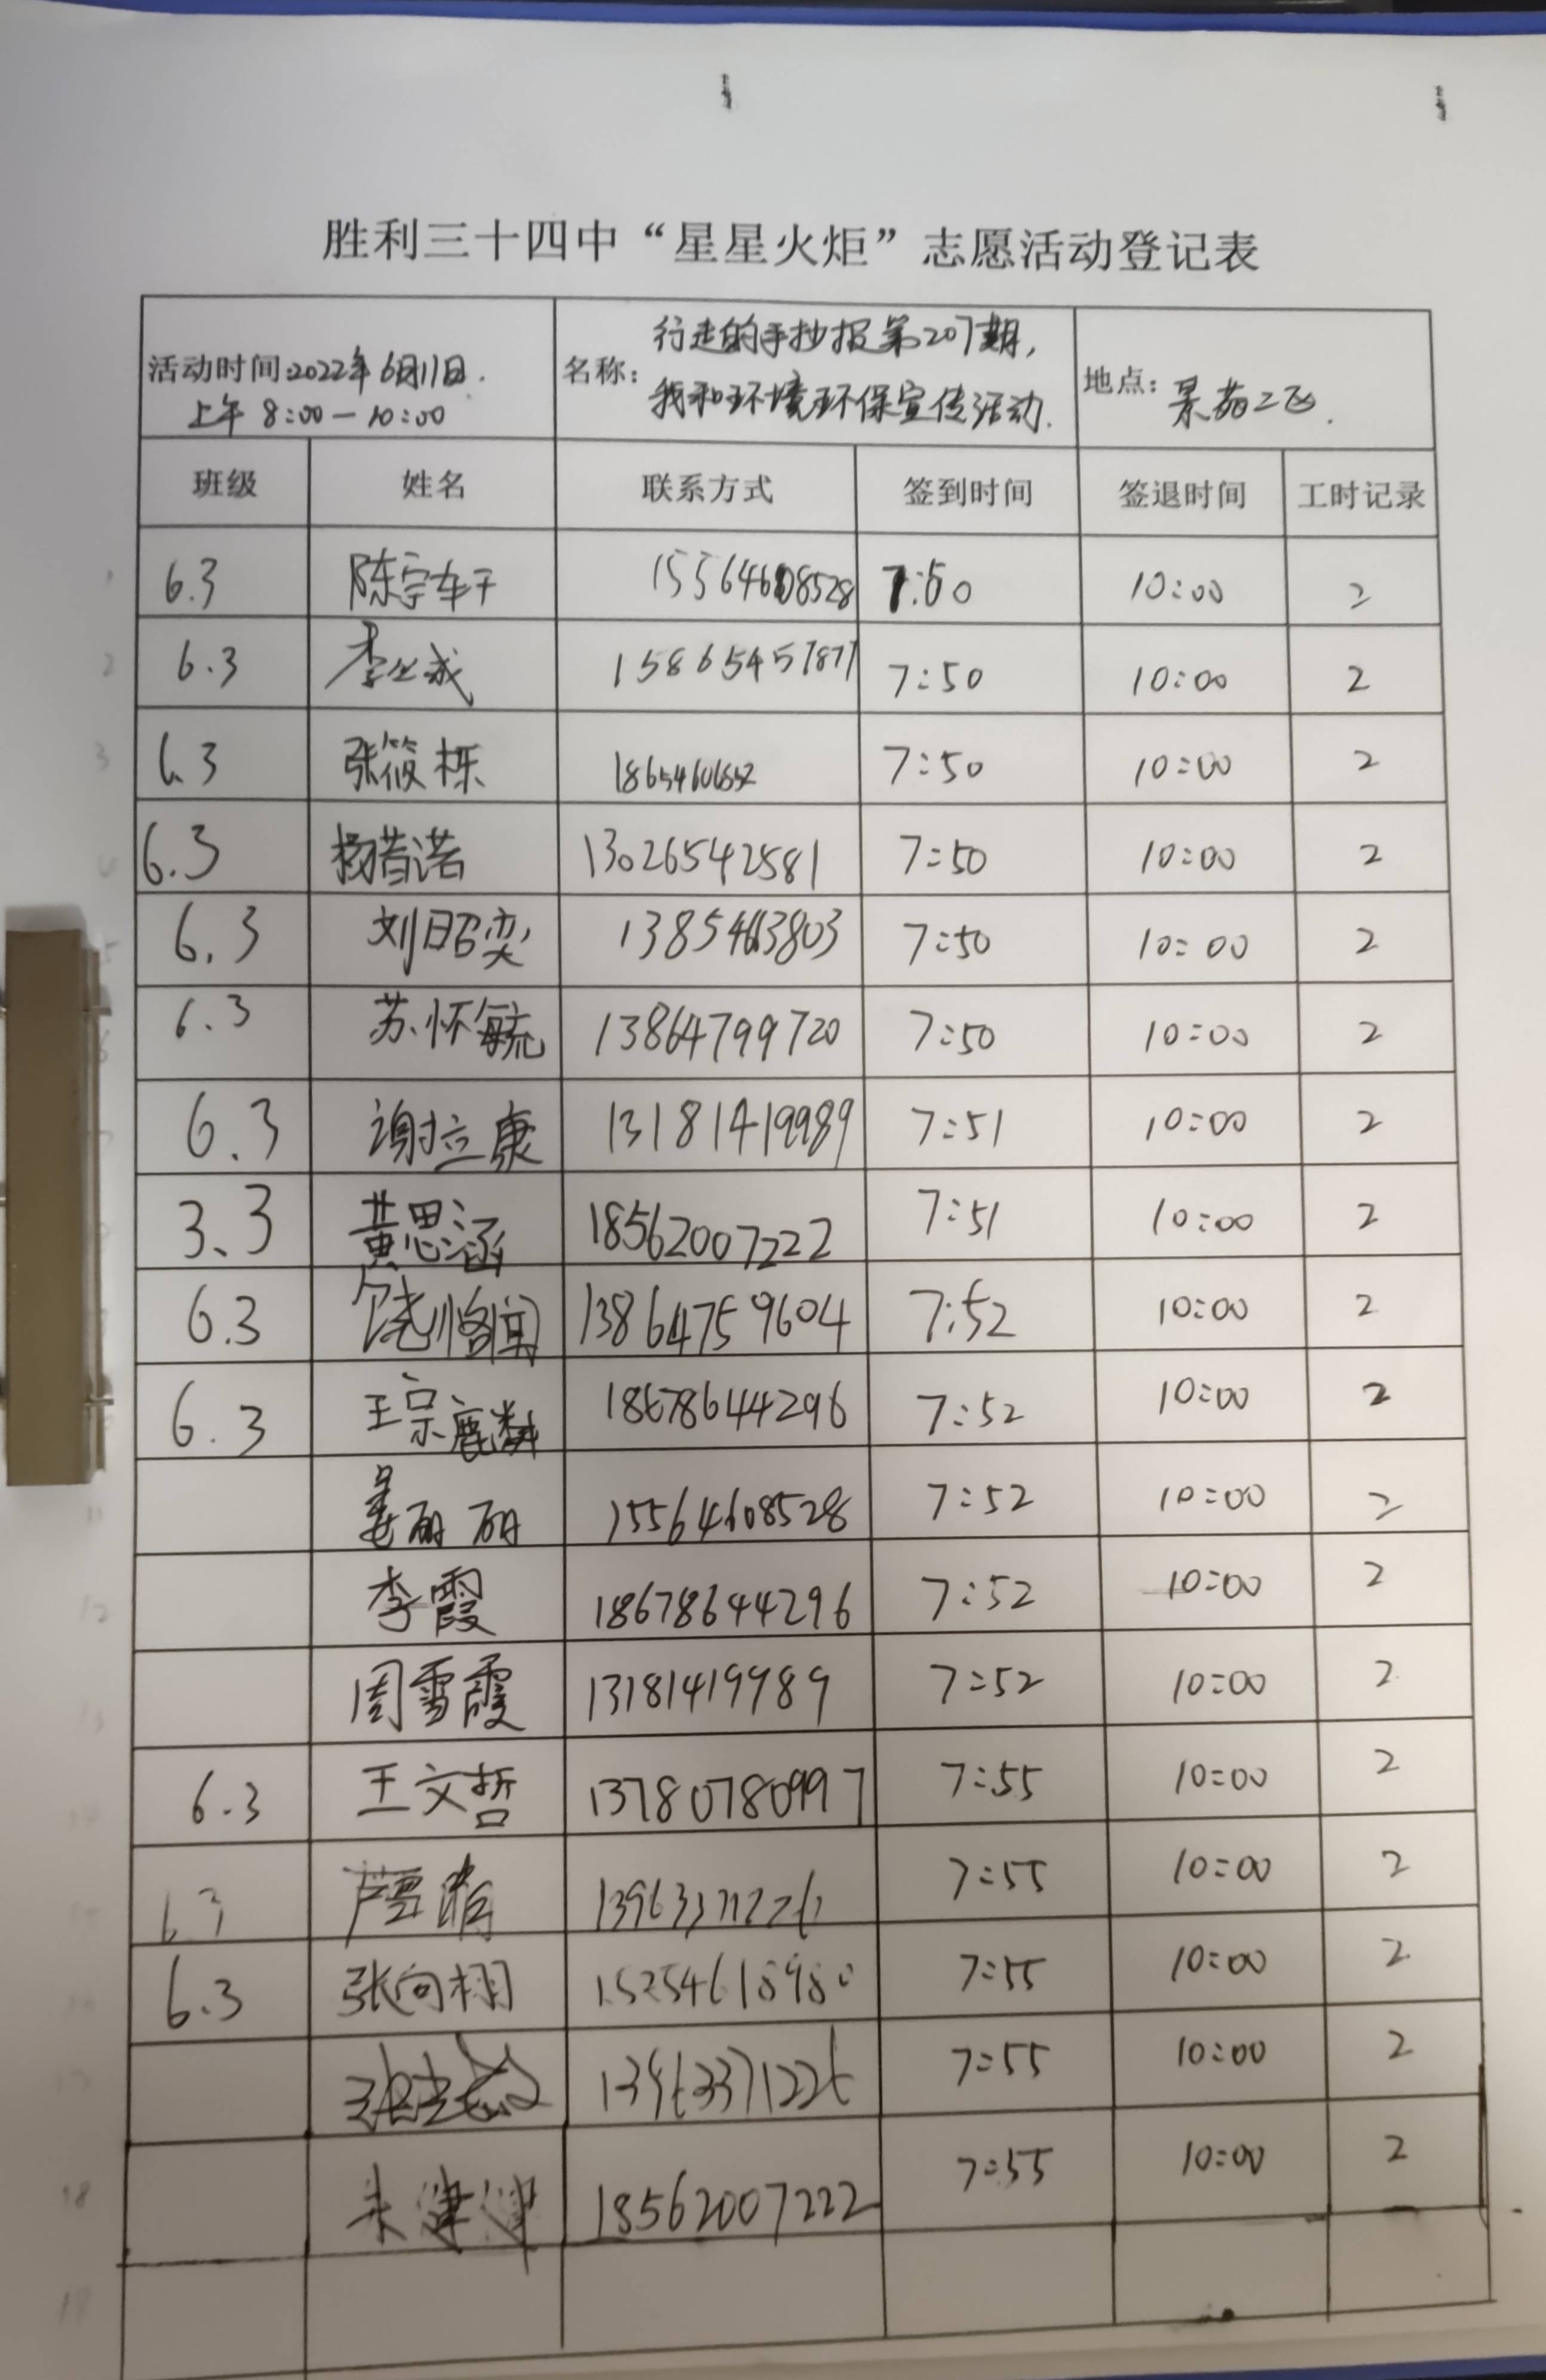 胜利三十四中“星星火炬”志愿活动登记表
活动时间:2022年6月11日.
上午 8:00-10:00
名称:
行走的手抄报第207期,
我和环境环保宣传活动.
地点: 景苑二区.
班级 姓名 联系方式 签到时间 签退时间 工时记录
6.3 15564608528 7:50 10:00 2
6.3 15865457877 7:50 10:00 2
6.3 张筱栎 7:50 10:00 2
6.3 杨惜诺 13026542581 7:50 10:00 2
6.3 刘昭奕 7:50 10:00 2
6.3 苏怀毓 13864799720 7:50 10:00 2
6.3 谢立康 13181419989 7:51 10:00 2
3.3 黄思涵 18562007222 7:51 10:00 2
6.3 饶恪闻 13864759604 7:52 10:00 2
6.3 王宗麟 18678644296 7:52 10:00 2
姜丽丽 15564608528 7:52 10:00 2
李霞 18678644296 7:52 10:00 2
周雪霞 13181419989 7:52 10:00 2
6.3 王文哲 13780780997 7:55 10:00 2
6.3 7:55 10:00 2
6.3 张向栩 15254618980 7:55 10:00 2
13963371226 7:55 10:00 2
18562007222 7:55 10:00 2